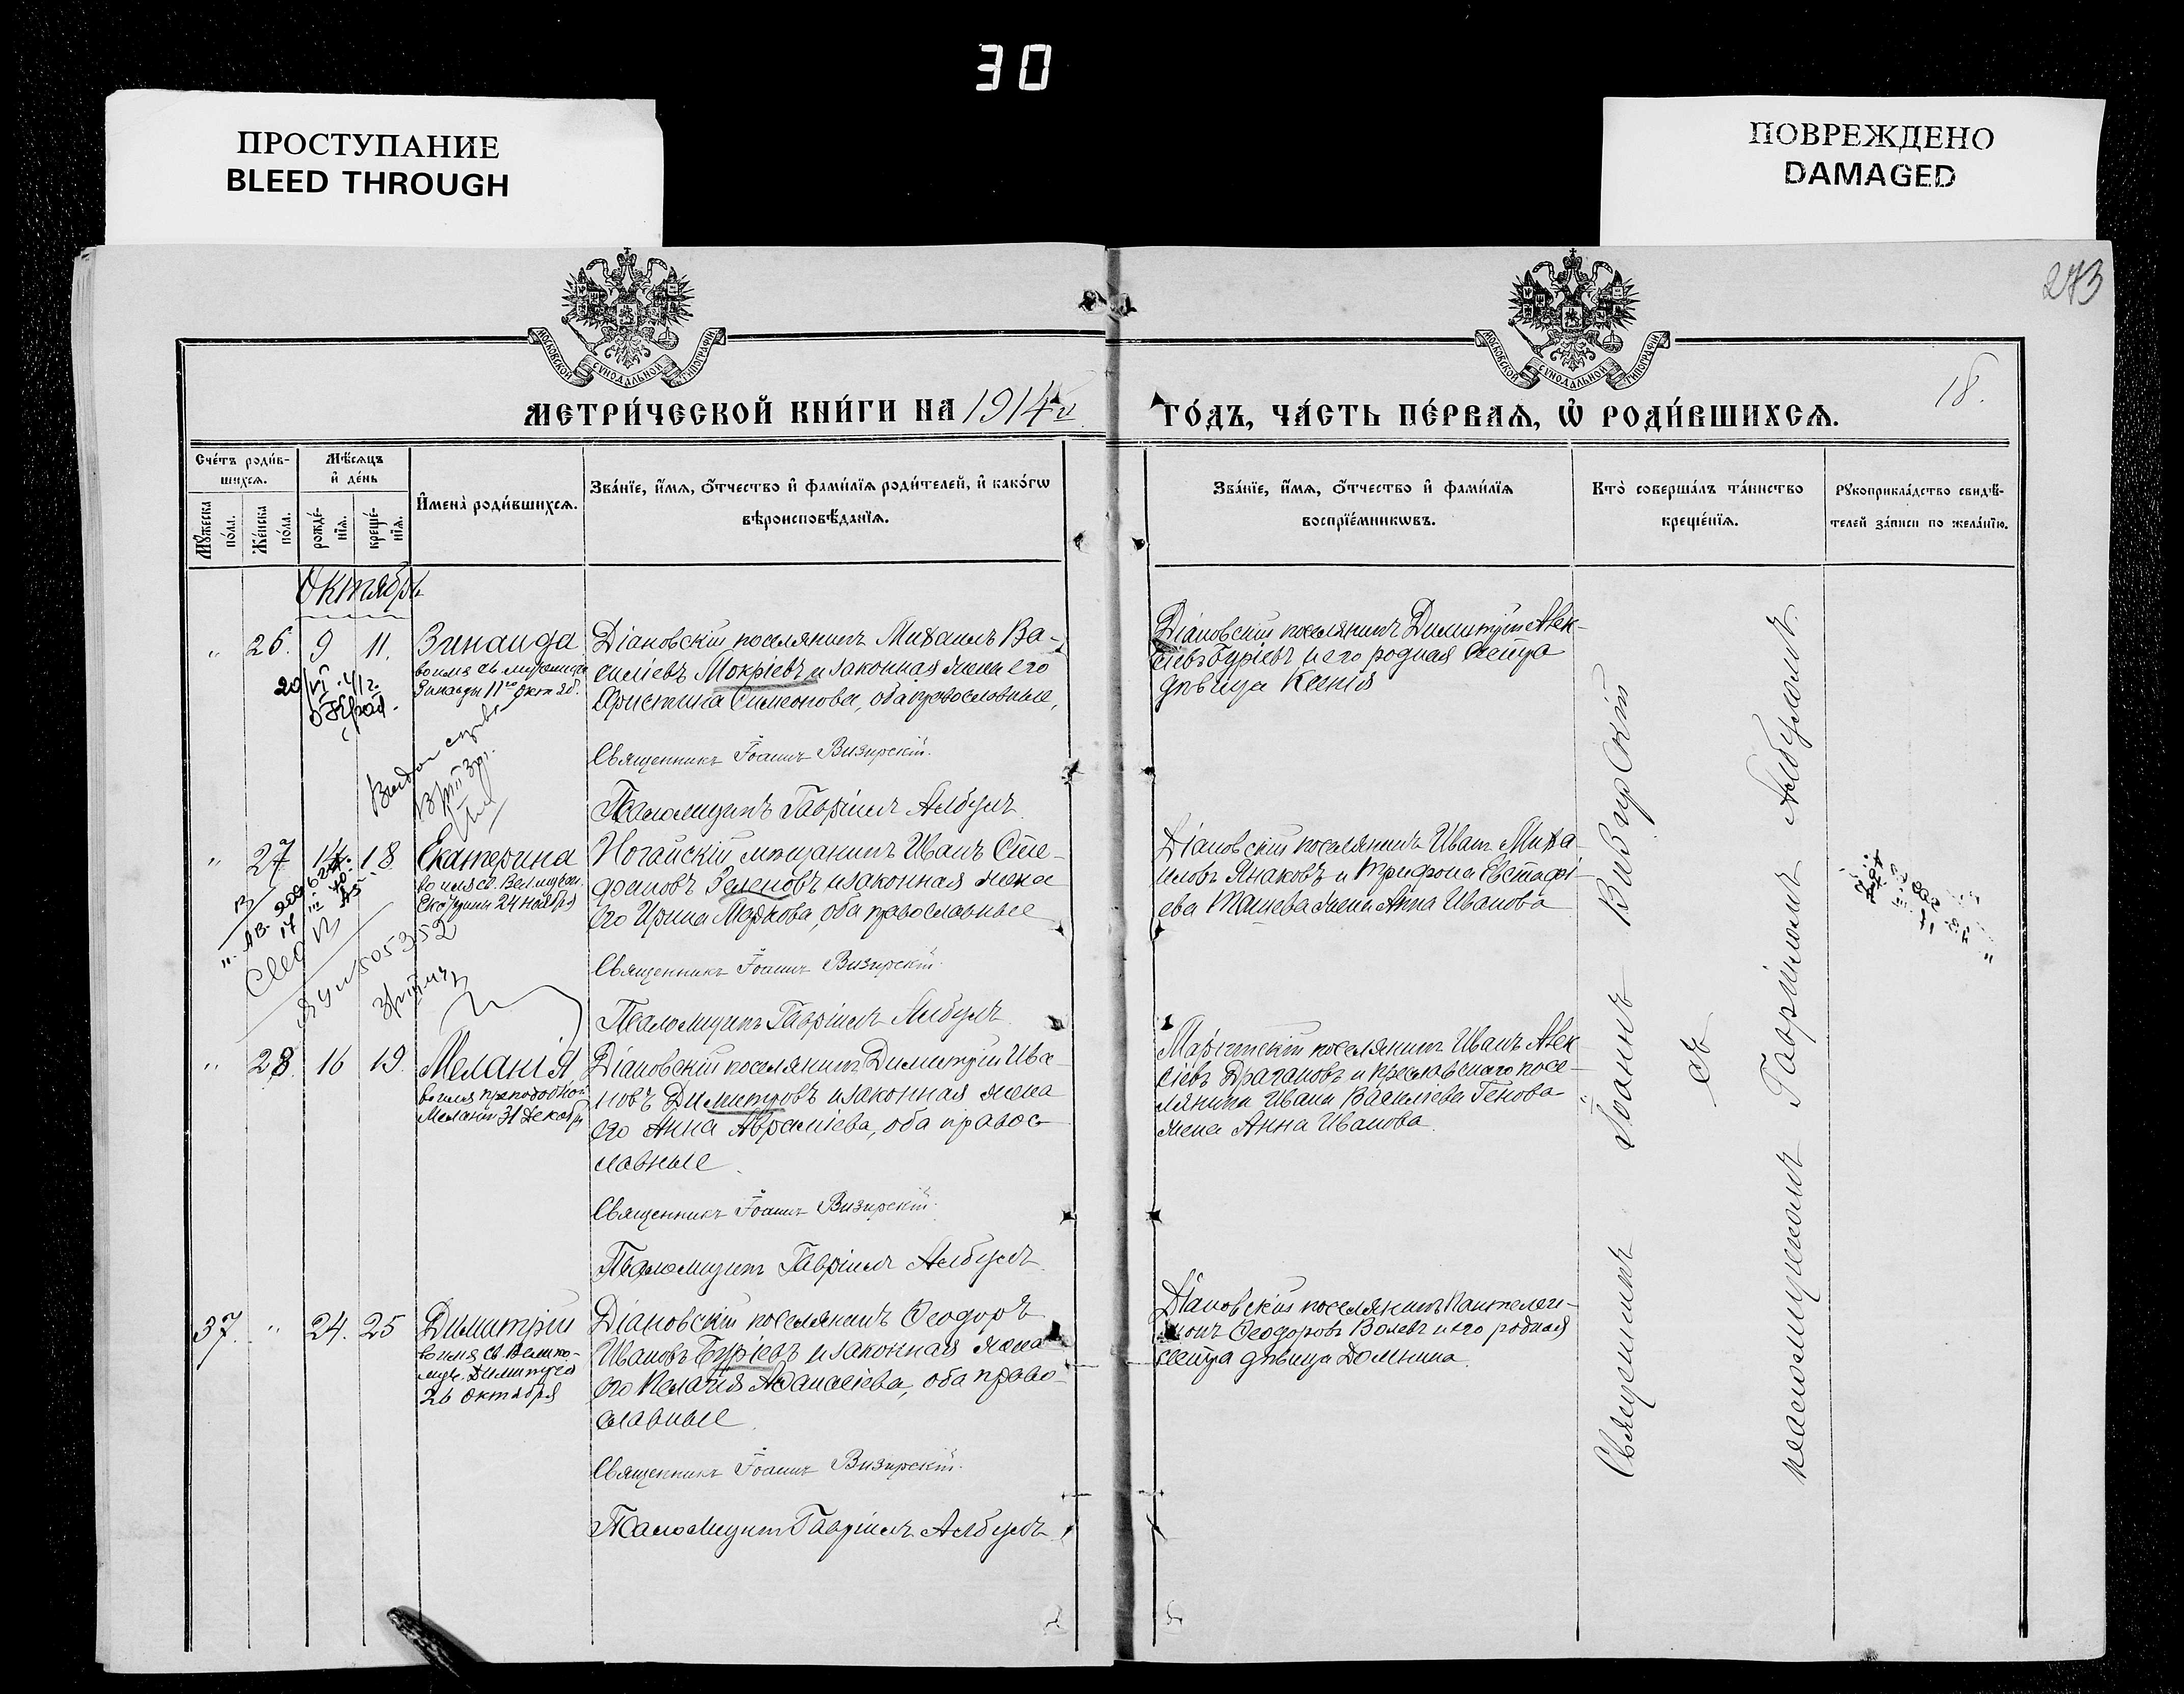 30
ПРОСТУПАНИЕ
BLEED THROUGH
ПОВРЕЖДЕНО
DAMAGED
273
МОСКОВСКОЙ СѴНОДАЛЬНОЙ ТИПОГРАФІИ
МОСКОВСКОЙ СѴНОДАЛЬНОЙ ТИПОГРАФІИ
18.
МЕТРИ́ЧЕСКОЙ КНИ́ГИ НА 1914й
ГО́ДЪ, ЧА́СТЬ ПЕ́РВАѦ, Ѡ РОДИ́ВШИХСѦ.
Счéтъ роди́в-
шихсѧ.
Мꙋ́жеска
по́ла.
Же́нска
по́ла.
Мѣ́сѧцъ
и҆ де́нь
рожде́-
нїѧ.
креще́-
нїѧ.
И҆мена̀ роди́вшихсѧ.
Зва́нїе, и҆́мѧ, ѻ҆́тчество и҆ фами́лїѧ роди́телей, и҆ како́гѡ
вѣроисповѣ́данїѧ.
Зва́нїе, и҆́мѧ, ѻ҆́тчество и҆ фами́лїѧ
воспрїе́мникѡвъ.
Кто̀ соверша́лъ та́инство
креще́нїѧ.
Рꙋкоприкла́дство свидѣ́-
телей за́писи по жела́нїю.
Октябрь
" 26. 9 11. Зинаида
во имя св. мученицы
Зинаиды 11го Окт
Діановскій поселянинъ Михаилъ Ва-
силіевъ Мокріевъ и законная жена его
Христина Симеонова, оба православные,
Священникъ Іоаннъ Визирскій.
Псаломщикъ Гавріилъ Албулъ
Діановскій поселянинъ Димитрій Алек-
сіевъ Буріевъ и его родная сестра
дѣвица Ксенія
" 27 14. 18 Екатерина
во имя св. Великомуч.
Екатерины 24 ноября
Ногайскій мѣщанинъ Иванъ Сте-
фановъ Зеленовъ и законная жена
его Ирина Маркова, оба православные
Священникъ Іоаннъ Визирскій.
Псаломщикъ Гавріилъ Албулъ
Діановскій поселянинъ Иванъ Миха-
иловъ Янаковъ и Трифона Евстафі-
ева Ташева жена Анна Иванова
" 28. 16 19. Меланія
во имя преподобной
Меланіи 31 декабр
Діановскій поселянинъ Димитрій Ива-
новъ Димитровъ и законная жена
его Анна Авраміева, оба правос-
лавные.
Священникъ Іоаннъ Визирскій.
Псаломщикъ Гавріилъ Албулъ.
поселянинъ Иванъ Алек
сіевъ Драгановъ и Преславскаго посе-
лянина Ивана Василіева Генова
жена Анна Иванова.
37. " 24. 25 Димитрій
во имя св. Велико-
муч. Димитрія
26 Октября
Діановскій поселянинъ Ѳеодоръ
Ивановъ Буріевъ и законная жена
его Пелагія Аѳанасіева, оба право-
славные.
Священникъ Іоаннъ Визирскій.
Псаломщикъ Гавріилъ Албулъ
Діановскій поселянинъ Пантелеи-
монъ Ѳеодоровъ Волевъ и его родная
сестра дѣвица Домнина.
Священникъ Іоаннъ Визирскій
съ
псаломщикомъ Гавріиломъ Албуломъ.